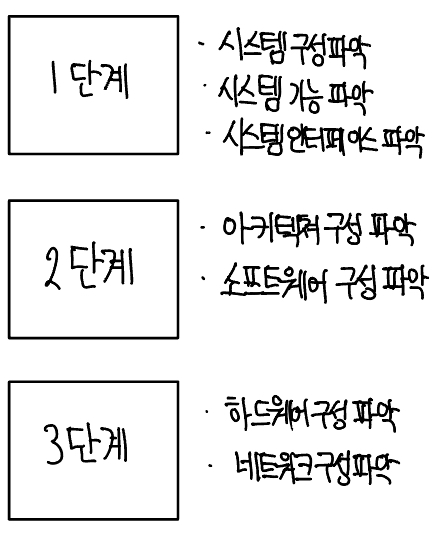 1단계
· 시스템 구성 파악
· 시스템 기능 파악
· 시스템 인터페이스 파악
2단계
· 아키텍쳐 구성 파악
· 소프트웨어 구성 파악
3단계
· 하드웨어 구성 파악
· 네트워크 구성 파악